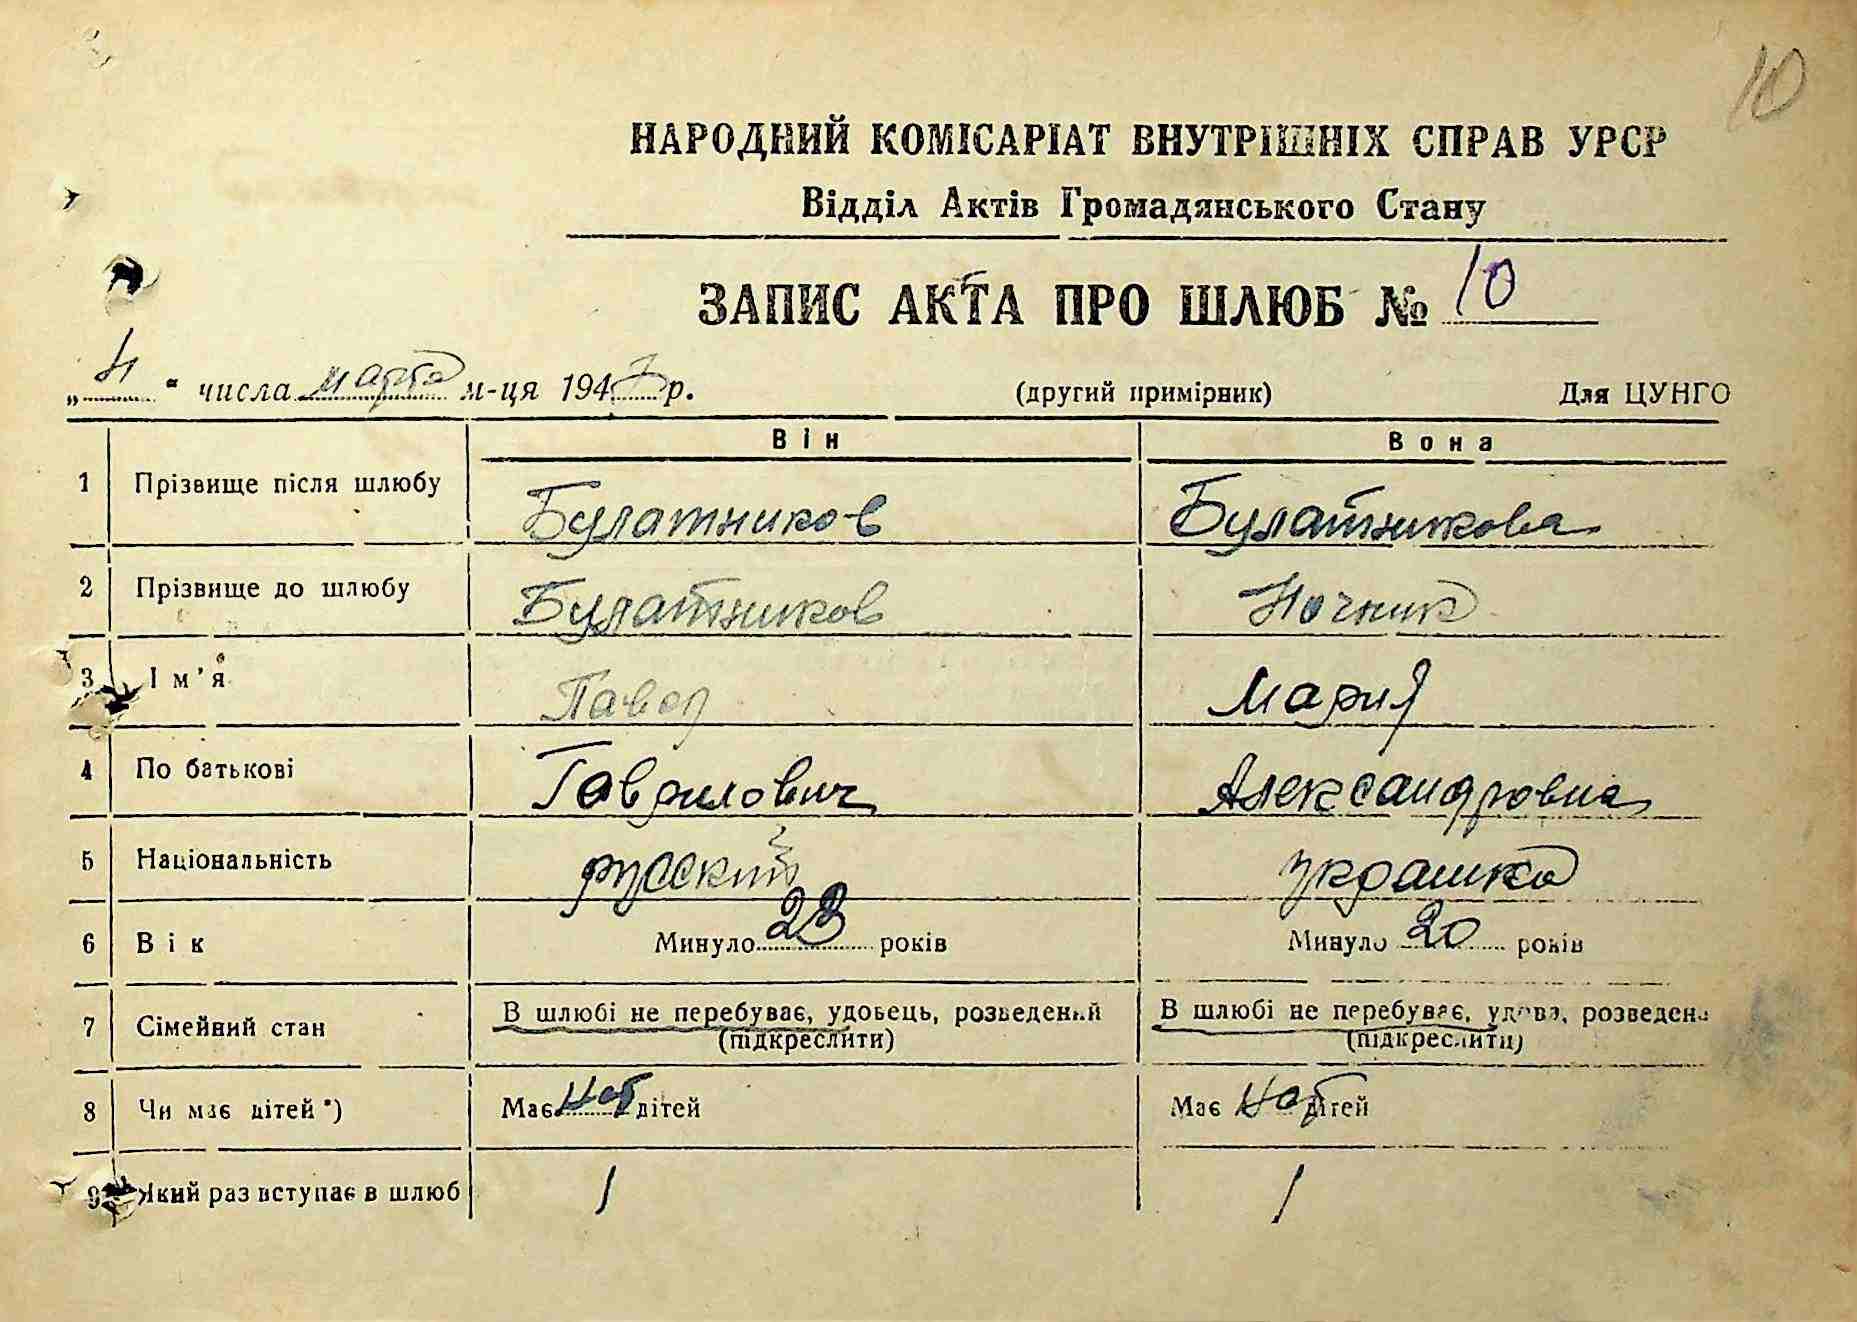 10
НАРОДНИЙ КОМІСАРІАТ ВНУТРІШНІХ СПРАВ УРСР
Відділ Актів Громадянського Стану
ЗАПИС АКТА ПРО ШЛЮБ № 10
„4“ числа марта м-ця 1943 р. (другий примірник) Для ЦУНГО
Він Вона
1 Прізвище після шлюбу Булатников Булатникова
2 Прізвище до шлюбу Булатников Ночник
3 Ім'я Павел Мария
4 По батькові Гаврилович Александровна
5 Національність русский украинка
6 Вік Минуло 23 років Минуло 20 років
7 Сімейний стан В шлюбі не перебуває, удовець, розведений В шлюбі не перебуває, удова, розведена
(підкреслити) (підкреслити)
8 Чи має дітей*) Має нет дітей Має нет дітей
9 Який раз вступає в шлюб 1 1